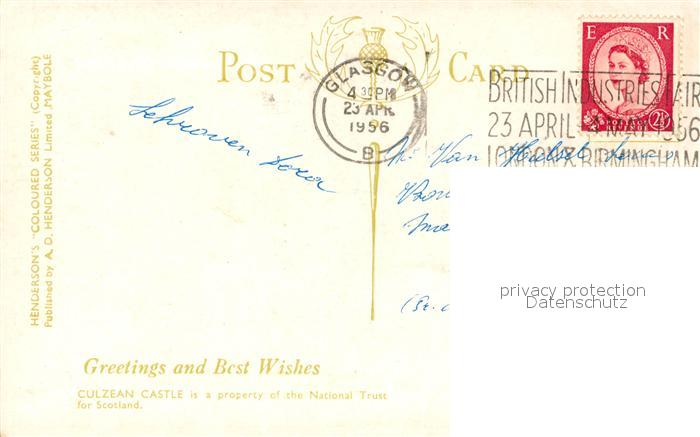 POST CARD
GLASGOW
4 30 PM
23 APR
1956
B
E R
POSTAGE
REVENUE
2½
BRITISH INDUSTRIES FAIR
23 APRIL - 4 MAY 1956
LONDON & BIRMINGHAM
HENDERSON'S "COLOURED SERIES" (Copyright)
Published by A. D. HENDERSON Limited MAYBOLE
Van
privacy protection
Datenschutz
Greetings and Best Wishes
CULZEAN CASTLE is a property of the National Trust
for Scotland.